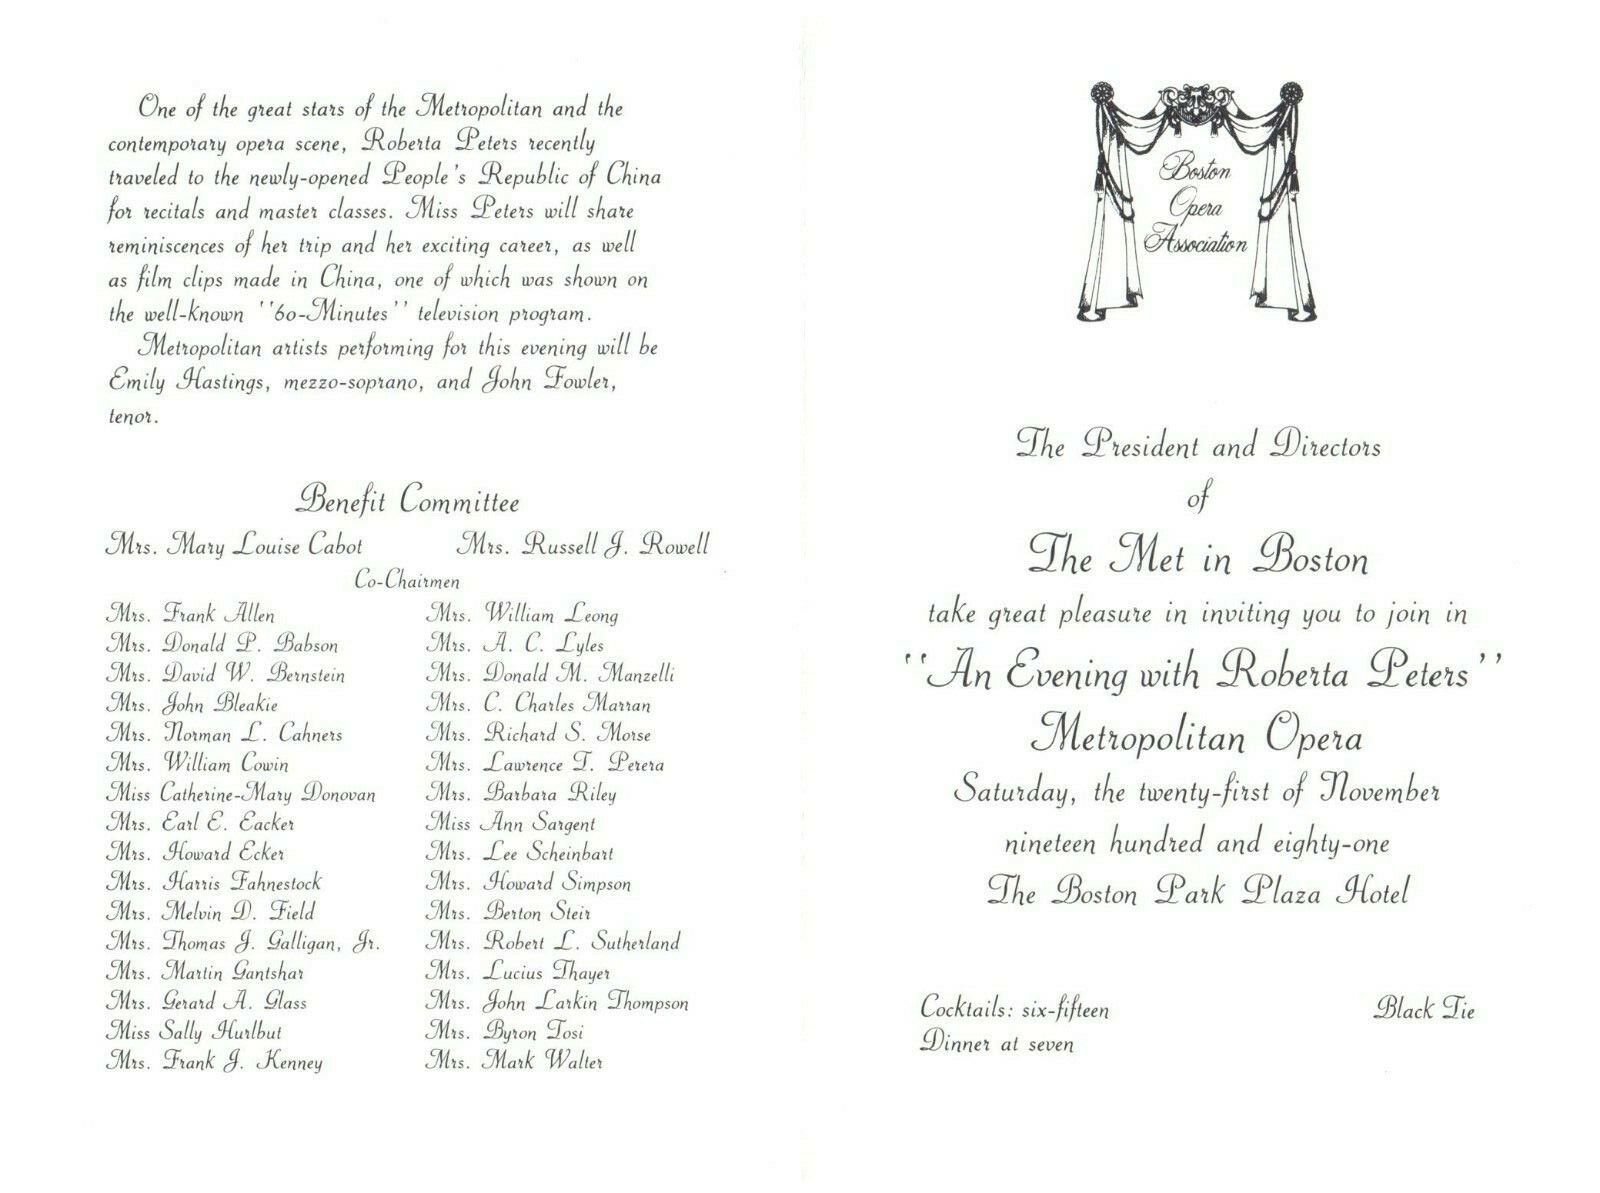 One of the great stars of the Metropolitan and the
contemporary opera scene, Roberta Peters recently
traveled to the newly-opened People's Republic of China
for recitals and master classes. Miss Peters will share
reminiscences of her trip and her exciting career, as well
as film clips made in China, one of which was shown on
the well-known "60-Minutes" television program.
Metropolitan artists performing for this evening will be
Emily Hastings, mezzo-soprano, and John Fowler,
tenor.
Benefit Committee
Mrs. Mary Louise Cabot Mrs. Russell J. Rowell
Co-Chairmen
Mrs. Frank Allen
Mrs. Donald P. Babson
Mrs. David W. Bernstein
Mrs. John Bleakie
Mrs. Norman L. Cahners
Mrs. William Cowin
Miss Catherine-Mary Donovan
Mrs. Earl E. Eacker
Mrs. Howard Ecker
Mrs. Harris Fahnestock
Mrs. Melvin D. Field
Mrs. Thomas J. Galligan, Jr.
Mrs. Martin Gantshar
Mrs. Gerard A. Glass
Miss Sally Hurlbut
Mrs. Frank J. Kenney
Mrs. William Leong
Mrs. A. C. Lyles
Mrs. Donald M. Manzelli
Mrs. C. Charles Marran
Mrs. Richard S. Morse
Mrs. Lawrence T. Perera
Mrs. Barbara Riley
Miss Ann Sargent
Mrs. Lee Scheinbart
Mrs. Howard Simpson
Mrs. Berton Steir
Mrs. Robert L. Sutherland
Mrs. Lucius Thayer
Mrs. John Larkin Thompson
Mrs. Byron Tosi
Mrs. Mark Walter
Boston
Opera
Association
The President and Directors
of
The Met in Boston
take great pleasure in inviting you to join in
"An Evening with Roberta Peters"
Metropolitan Opera
Saturday, the twenty-first of November
nineteen hundred and eighty-one
The Boston Park Plaza Hotel
Cocktails: six-fifteen Black Tie
Dinner at seven